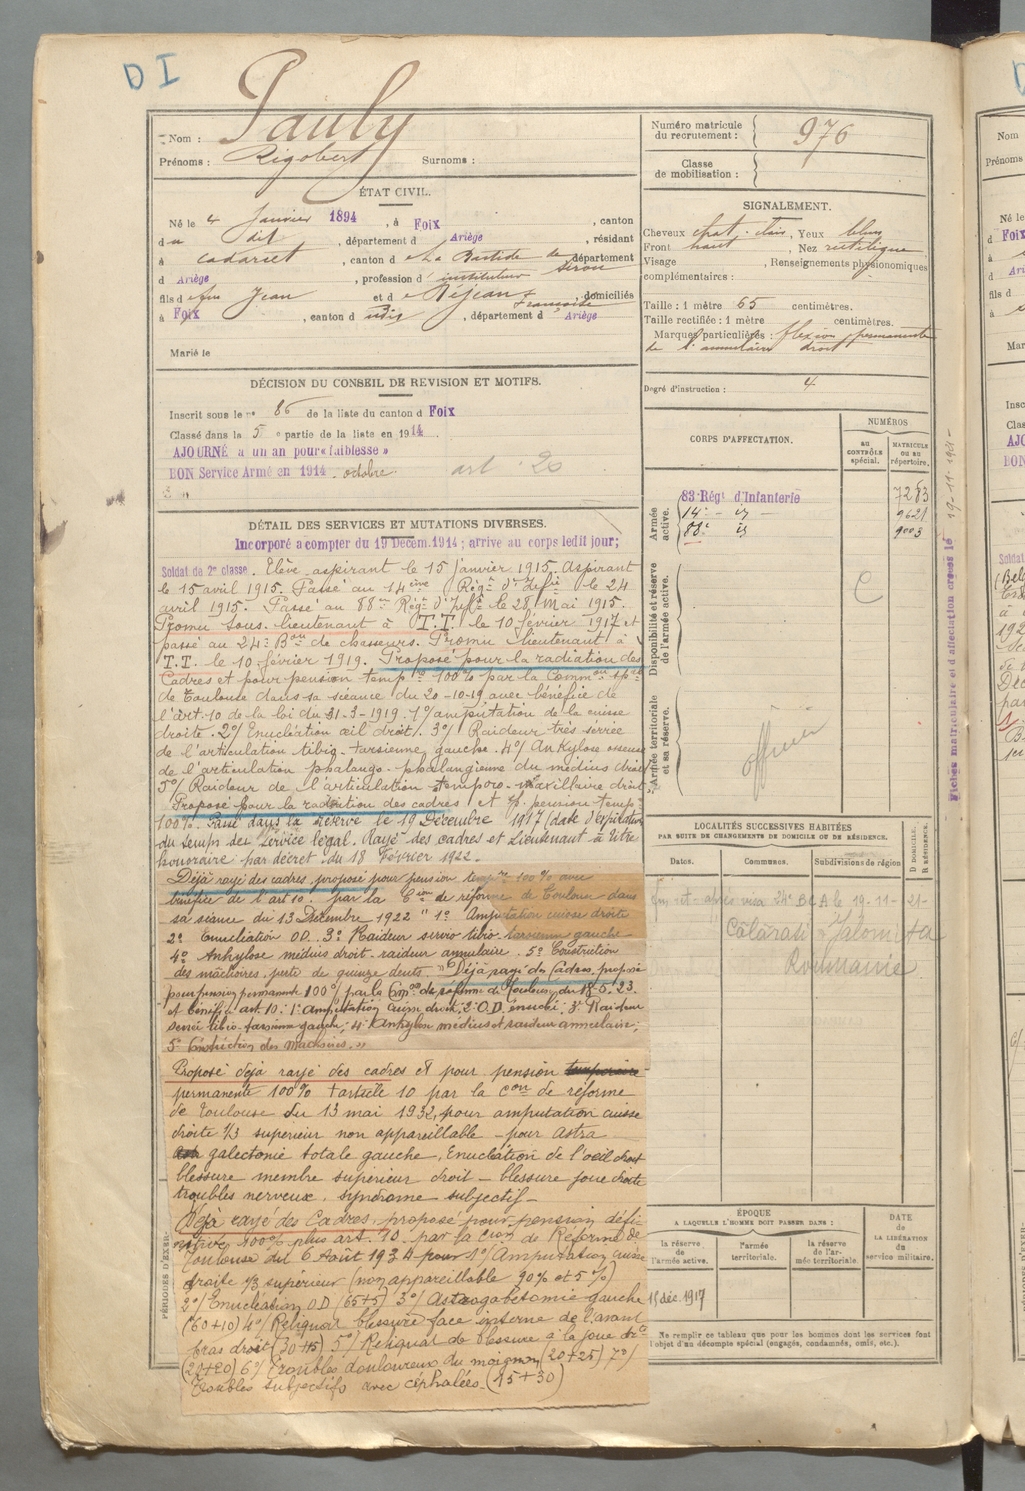 D I
Nom : Pauly
Prénoms : Rigobert Surnoms :
ÉTAT CIVIL.
Né le 4 Janvier 1894, à Foix, canton
du dit, département d Ariège, résidant
à Cadarcet, canton de La Bastide de Sérou, département
d Ariège, profession d'instituteur
fils de feu Jean et de Réjean Françoise, domiciliés
à Foix, canton dudit, département d Ariège
Marié le
DÉCISION DU CONSEIL DE REVISION ET MOTIFS.
Inscrit sous le n° 86 de la liste du canton d Foix
Classé dans la 5e partie de la liste en 1914
AJOURNÉ à un an pour « faiblesse »
BON Service Armé en 1914 octobre art. 20
DÉTAIL DES SERVICES ET MUTATIONS DIVERSES.
Incorporé à compter du 19 Décem. 1914 ; arrivé au corps ledit jour ;
Soldat de 2e classe. Elève aspirant le 15 janvier 1915. Aspirant
le 15 avril 1915. Passé au 14ème Régt d'Infie le 24
avril 1915. Passé au 88me Régt d'Infie le 28 Mai 1915.
Promu Sous-lieutenant à T.T. le 10 février 1917 et
passé au 24e Bon de chasseurs. Promu lieutenant à
T.T. le 10 février 1919. Proposé pour la radiation des
Cadres et pour pension tempre 100% par la Common spale
de Toulouse dans sa séance du 20-10-19 avec bénéfice de
l'art. 10 de la loi du 31-3-1919. 1°/ amputation de la cuisse
droite. 2°/ Enucléation œil droit. 3°/ Raideur très serrée
de l'articulation tibio-tarsienne gauche. 4°/ Ankylose osseuse
de l'articulation phalango-phalangienne du médius droit
5°/ Raideur de l'articulation temporo-maxillaire droite
Proposé pour la radiation des cadres et pr pension tempre
100%. Passé dans la réserve le 19 Décembre 1917 (date d'expiration
du temps de Service légal. Rayé des cadres et Lieutenant à titre
honoraire par décret du 18 Février 1922.
Déjà rayé des cadres, proposé pour pension tempre 100% avec
bénéfice de l'art 10. par la Cion de réforme de Toulouse dans
sa séance du 13 Décembre 1922 " 1° Amputation cuisse droite
2° Enucléation OD. 3° Raideur serrée tibio-tarsienne gauche
4° Ankylose médius droit raideur annulaire. 5° Constriction
des mâchoires, perte de quinze dents. " Déjà rayé des Cadres, proposé
pour pension permanente 100% par la Con de réforme de Toulouse du 18.6.23.
et bénéfice art. 10 : 1° amputation cuisse droite, 2° O.D. énucléé, 3° Raideur
serrée tibio-tarsienne gauche ; 4° Ankylose médius et raideur annulaire ;
5° Constriction des Machoires. "
Proposé déjà rayé des cadres et pour pension temporaire
permanente 100% + article 10 par la Con de réforme
de Toulouse du 13 mai 1932, pour amputation cuisse
droite 1/3 supérieur non appareillable - pour astra
galectomie totale gauche. Enucléation de l'œil droit
blessure membre supérieur droit - blessure joue droite
troubles nerveux. Syndrome subjectif -
Déjà rayé des Cadres, proposé pour pension défi-
nitive 100% plus art. 10. par la Cion de Réforme de
Toulouse du 6 Août 1934 pour 1°/ Amputation cuisse
droite 1/3 supérieur (non appareillable 90% et 5%)
2°/ Enucléation OD (65+5) 3°/ Astragalectomie gauche
(60+10) 4°/ Reliquat blessure face interne de l'avant
bras droit (30+15) 5°/ Reliquat de blessure à la joue dte
(20+20) 6°/ Troubles douloureux du moignon (20+25) 7°/
Troubles subjectifs avec céphalées. (15+30)
PÉRIODES D'EXER-
Numéro matricule du recrutement : 976
Classe de mobilisation :
SIGNALEMENT.
Cheveux chat. clair, Yeux bleus
Front haut, Nez rectiligne
Visage , Renseignements physionomiques
complémentaires :
Taille : 1 mètre 65 centimètres.
Taille rectifiée : 1 mètre centimètres.
Marques particulières : flexion permanente
de l'annulaire droit
Degré d'instruction : 4
CORPS D'AFFECTATION.
NUMÉROS
au CONTRÔLE spécial.
MATRICULE ou au répertoire.
Armée active.
83 Régt d'Infanterie 7283
14e - is - 9621
88e is 9003
Disponibilité et réserve de l'armée active.
C
Armée territoriale et sa réserve.
officier
LOCALITÉS SUCCESSIVES HABITÉES
PAR SUITE DE CHANGEMENTS DE DOMICILE OU DE RÉSIDENCE.
Dates. Communes. Subdivisions de région
D. DOMICILE. R. RÉSIDENCE.
24e BCA le 19-11-21-
Calarasi Jalomitza
Roumanie
ÉPOQUE
A LAQUELLE L'HOMME DOIT PASSER DANS :
la réserve de l'armée active.
l'armée territoriale.
la réserve de l'armée territoriale.
DATE de LA LIBÉRATION du service militaire.
15 déc. 1917
Ne remplir ce tableau que pour les hommes dont les services font
l'objet d'un décompte spécial (engagés, condamnés, omis, etc.).
Fiches matriculaire et d'affectation créées le 19-11-1921-